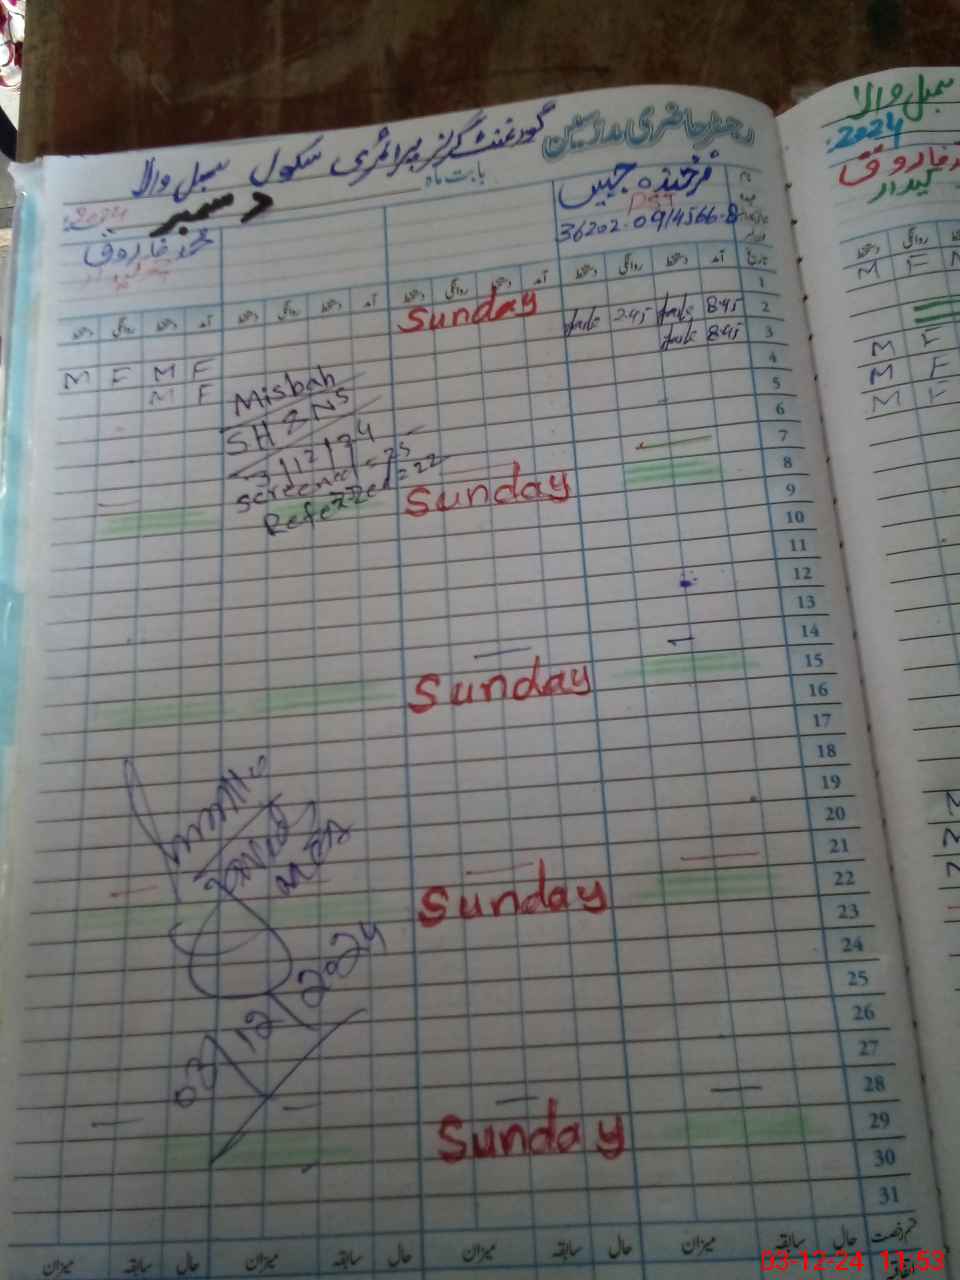 رجسٹر حاضری مدرسین گورنمنٹ گرلز پرائمری سکول سمبل والا
بابت ماہ دسمبر 2024
فرخندہ جبیں
PST
36202-0914566-8
محمد فاروق
آمد دستخط روانگی دستخط آمد دستخط روانگی دستخط آمد دستخط روانگی دستخط آمد دستخط روانگی دستخط
1 Sunday
2 8:45 2:45 F M F M
3 8:45 F M
4
5
6
7
8 Sunday
9
10
11
12
13
14
15 Sunday
16
17
18
19
20
21
22 Sunday
23
24
25
26
27
28
29 Sunday
30
31
Misbah
SH & NS
3/12/24
Screened = 25
Referred = 22
03/12/2024
حال سابقہ میزان حال سابقہ میزان حال سابقہ میزان حال سابقہ میزان
سمبل والا
2024
فاروق
M F
M F
M F
M F
03-12-24 11:53